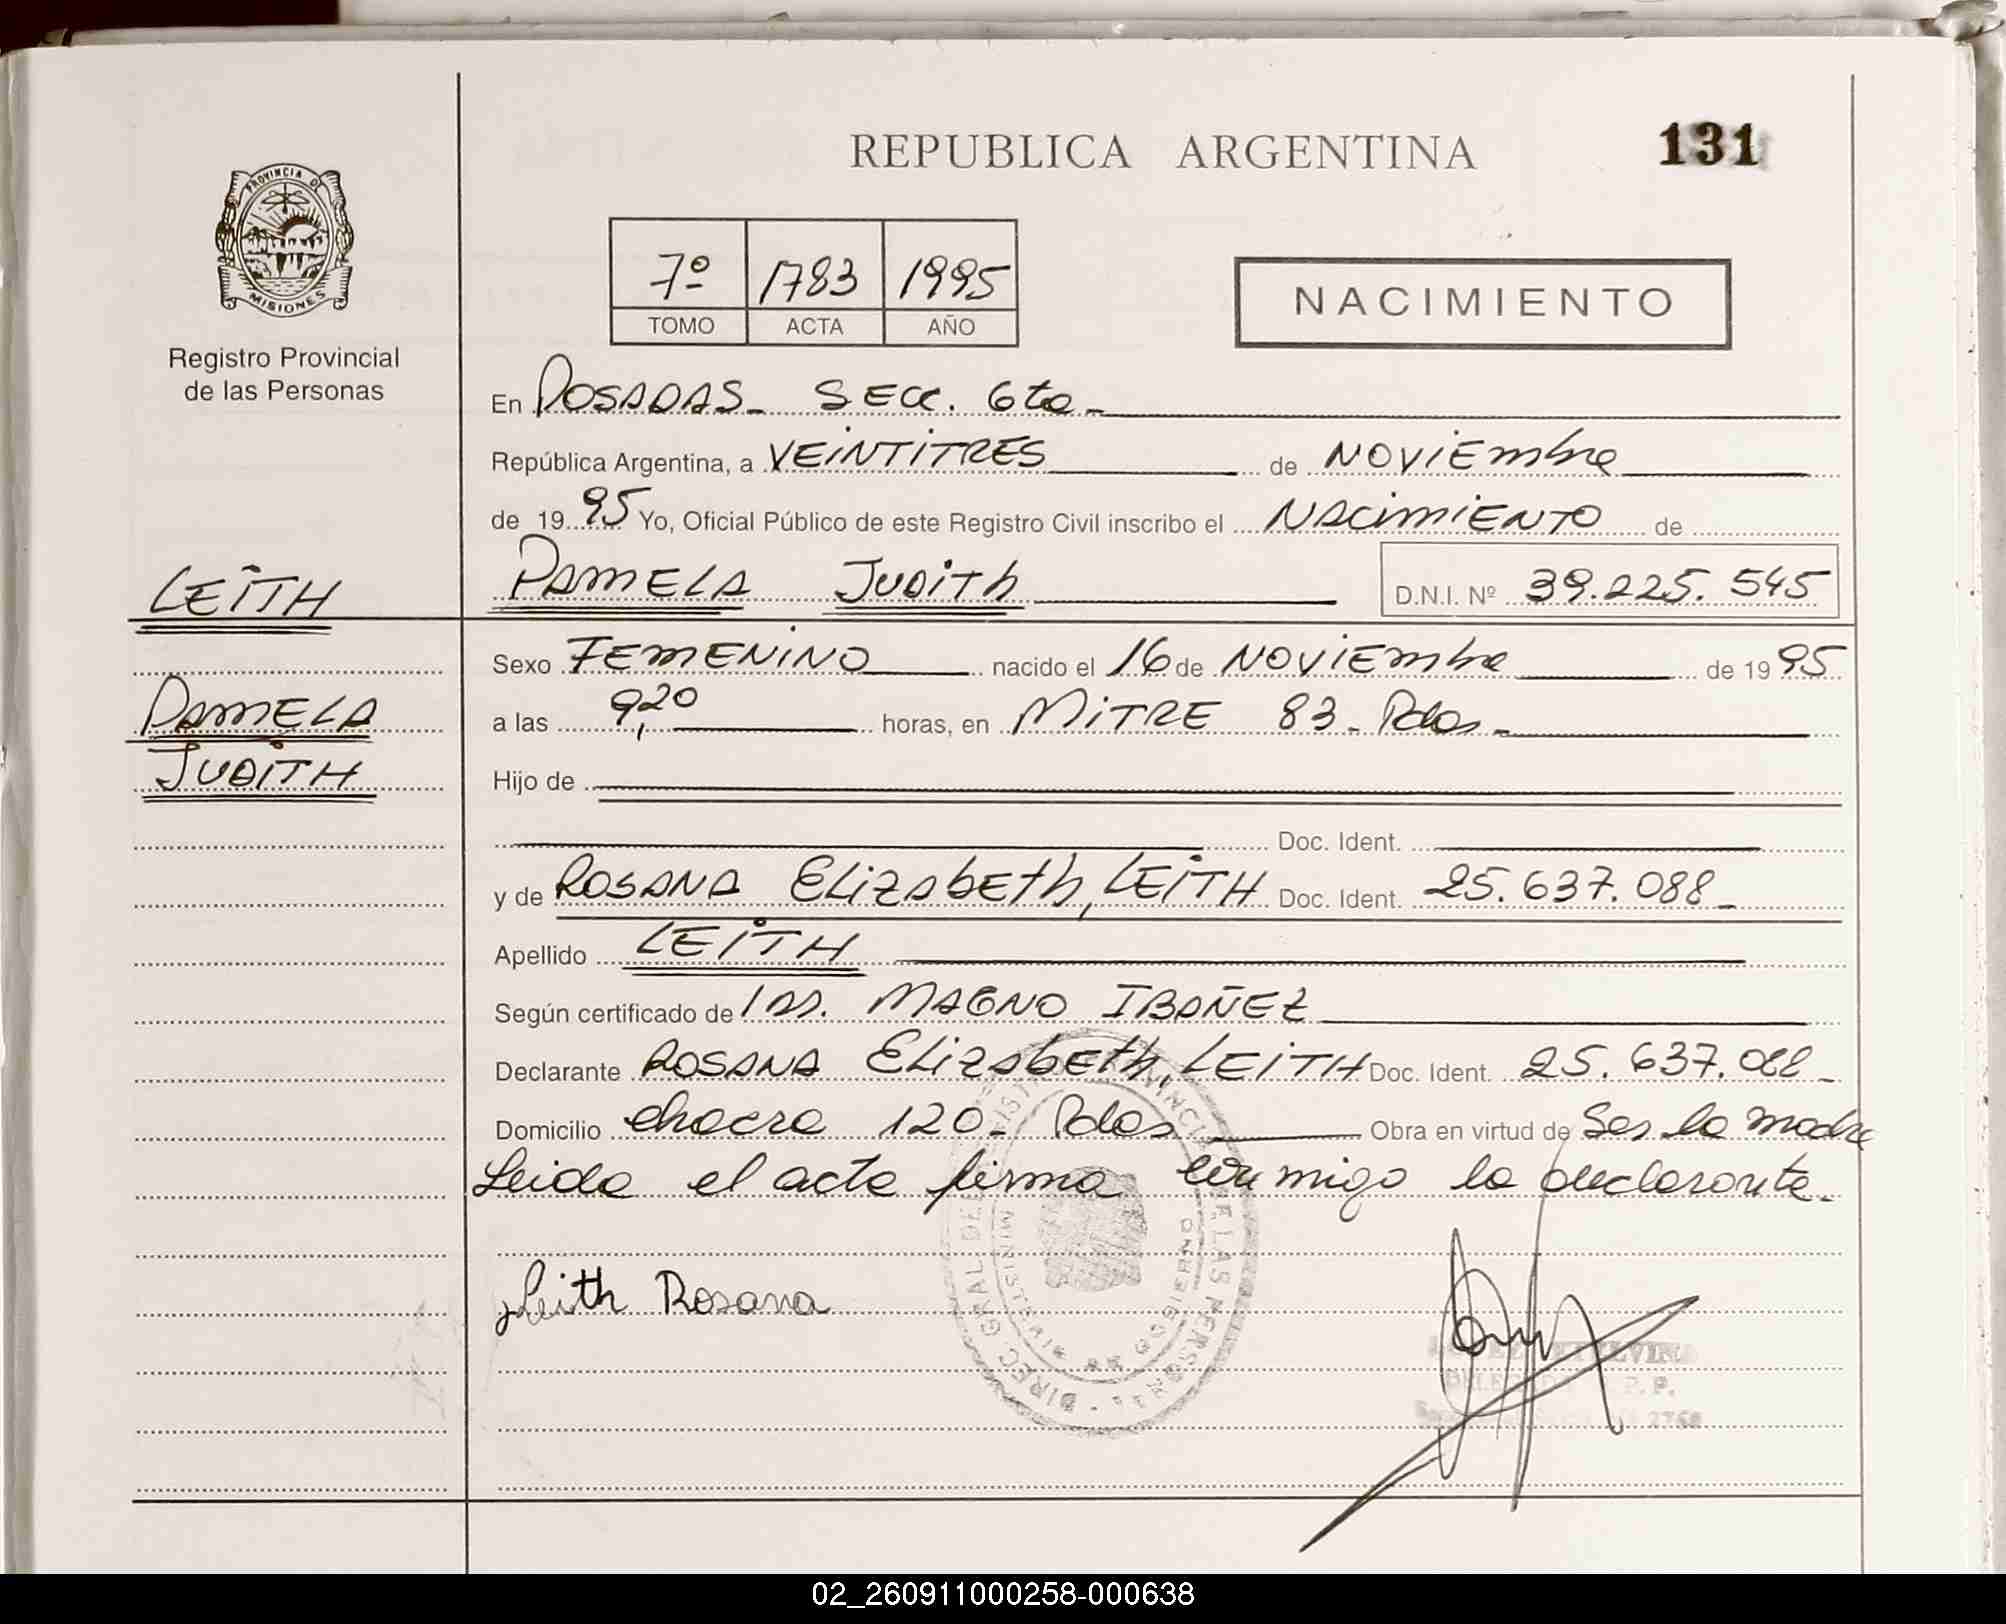 REPUBLICA ARGENTINA
131
PROVINCIA DE
MISIONES
Registro Provincial
de las Personas
7º 1783 1995
TOMO ACTA AÑO
NACIMIENTO
En POSADAS - SECC. 6ta -
República Argentina, a VEINTITRES de NOVIEmbre
de 19 95 Yo, Oficial Público de este Registro Civil inscribo el NACIMIENTO de
LEITH
PAMELA JUDITh D.N.I. Nº 39.225.545
Sexo FEMENINO nacido el 16 de NOVIEmbre de 19 95
PAMELA
a las 9,20 horas, en MITRE 83 - Pdas -
JUDITH
Hijo de
Doc. Ident.
y de ROSANA ELIZAbETh, LEITH Doc. Ident. 25.637.088 -
Apellido LEITH
Según certificado de MAGNO IBAÑEZ
Declarante ROSANA ELIZAbETh, LEITH Doc. Ident. 25.637.088 -
Domicilio chacra 120 - Pdas Obra en virtud de Ser la madre
Leida el acta firma conmigo la declarante.
Leith Rosana
DIREC. GRAL. DE PROVINCIAL DE LAS PERSONAS
MINISTERIO GOBIERNO
02_260911000258-000638